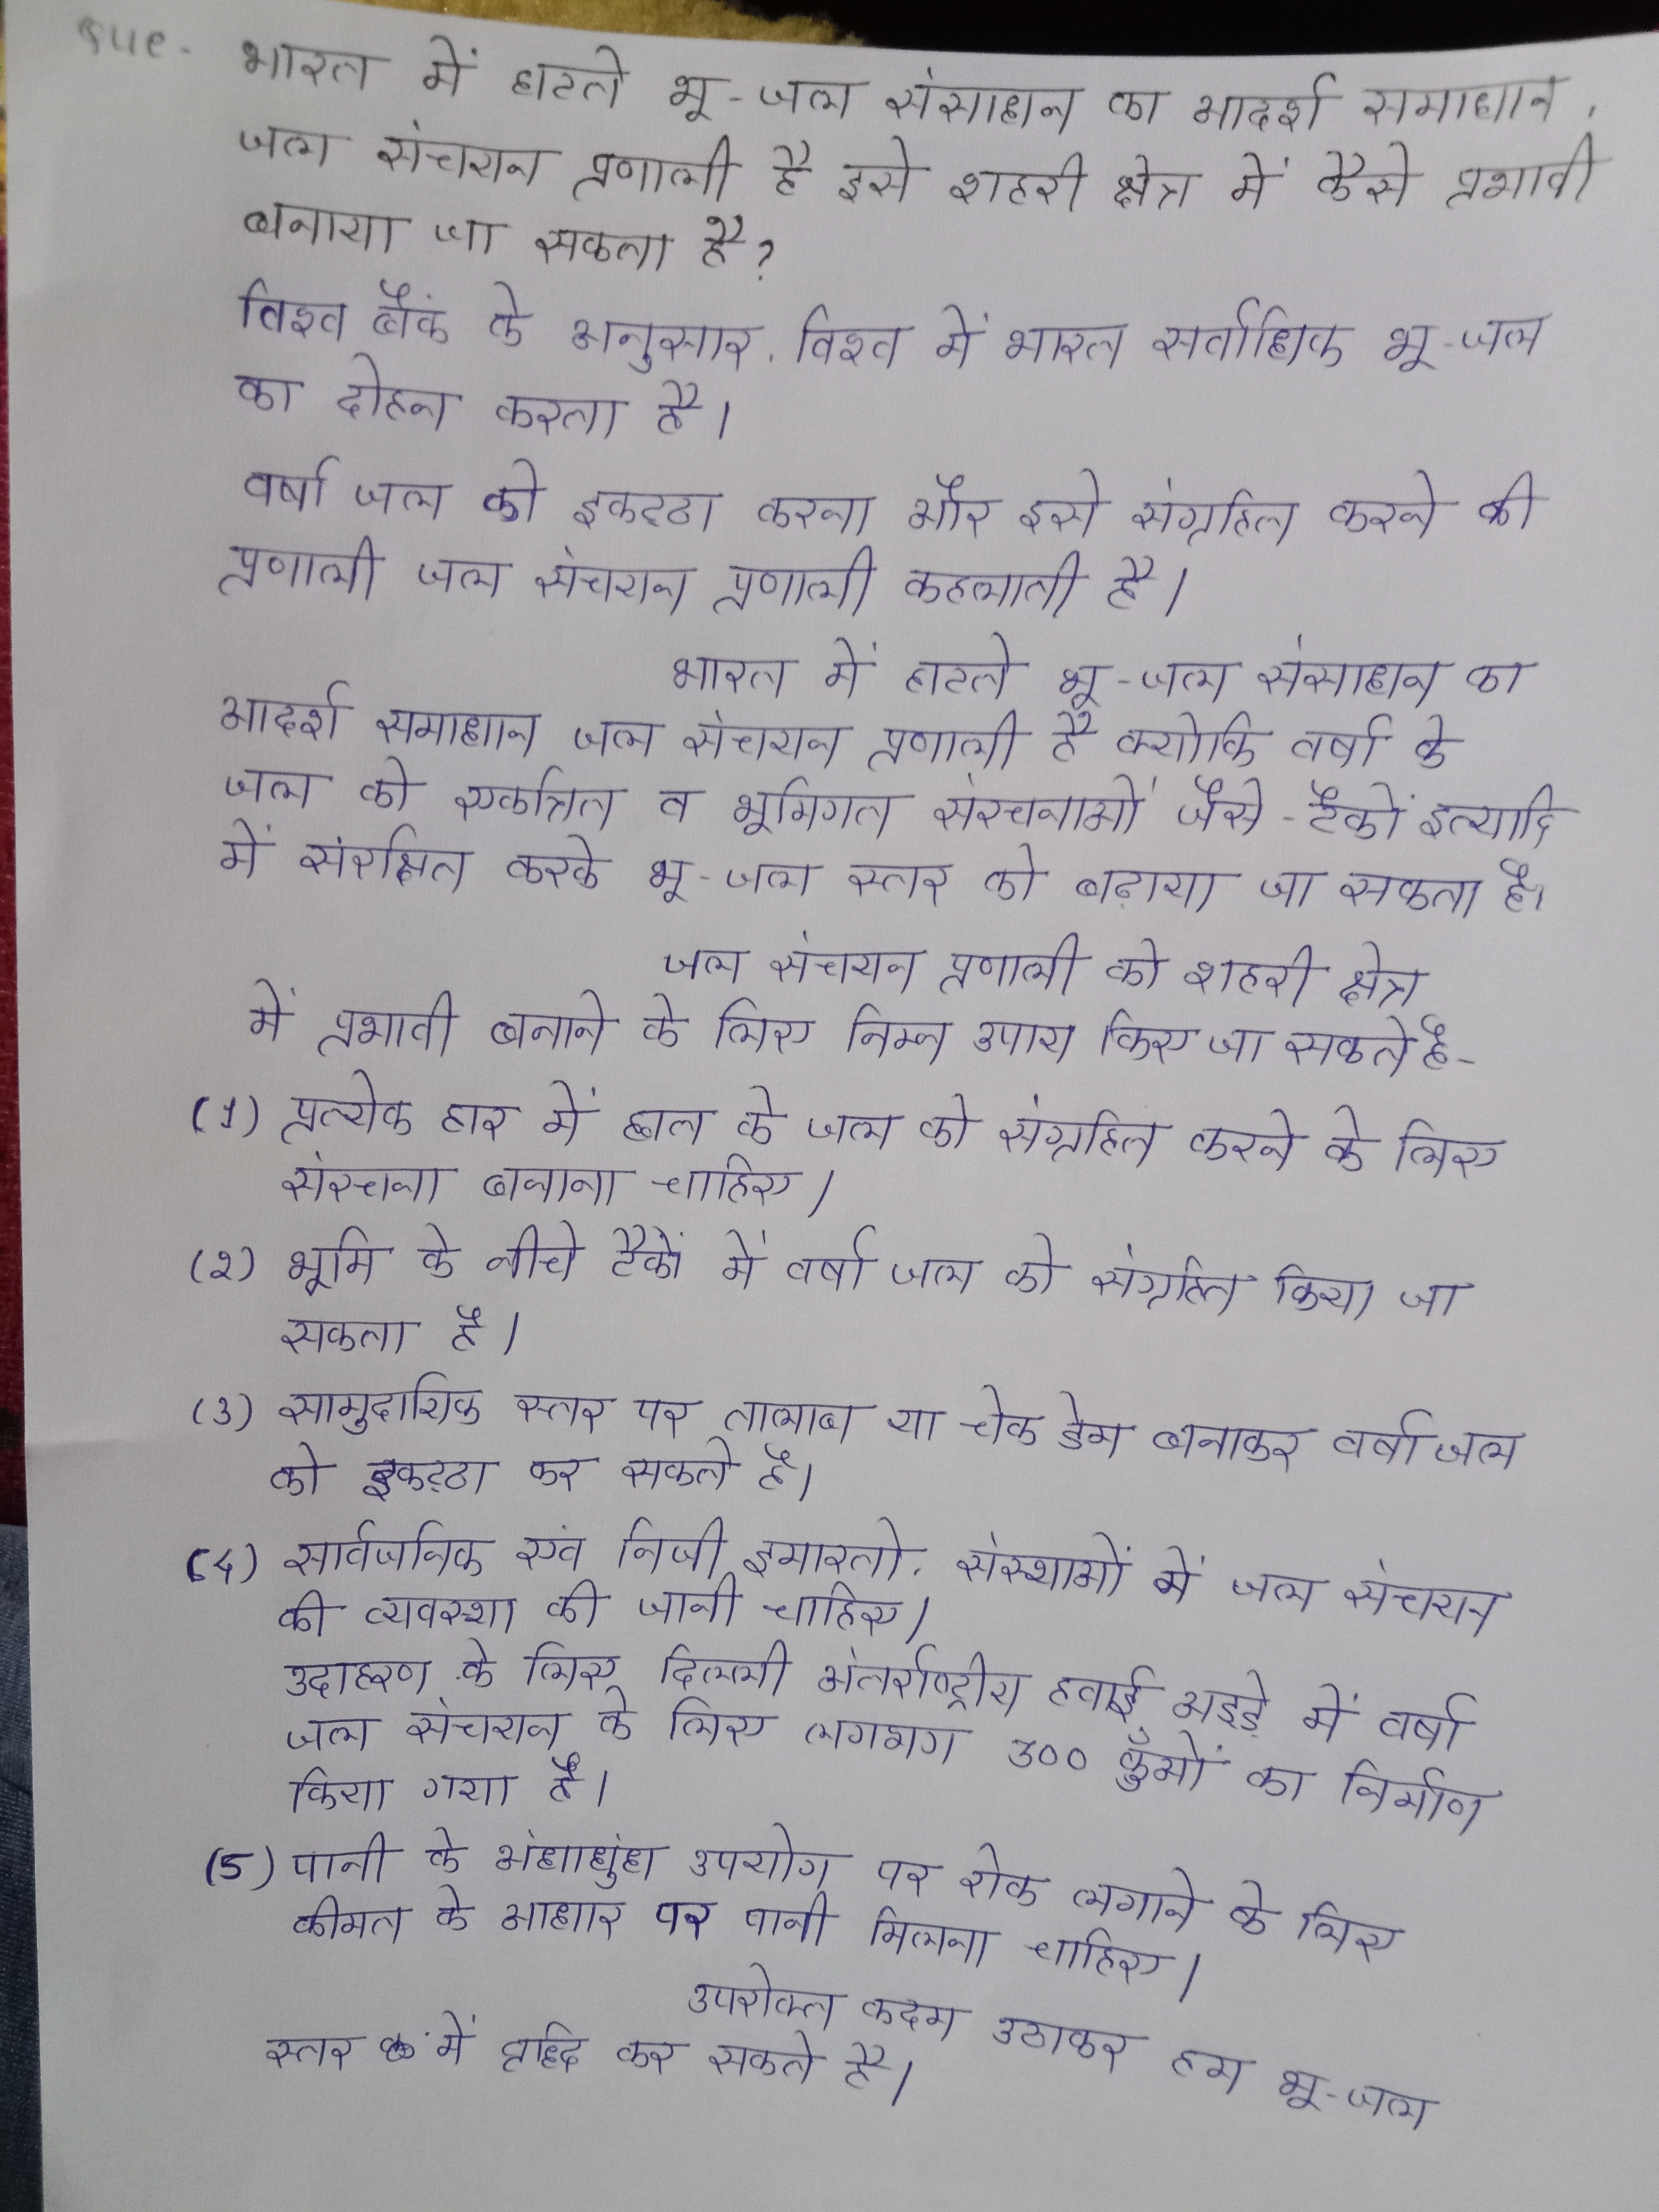 Que. भारत में घटते भू-जल संसाधन का आदर्श समाधान,
जल संचयन प्रणाली है इसे शहरी क्षेत्र में कैसे प्रभावी
बनाया जा सकता है?
विश्व बैंक के अनुसार, विश्व में भारत सर्वाधिक भू-जल
का दोहन करता है।
वर्षा जल को इकट्ठा करना और इसे संग्रहित करने की
प्रणाली जल संचयन प्रणाली कहलाती है।
भारत में घटते भू-जल संसाधन का
आदर्श समाधान जल संचयन प्रणाली है क्योकि वर्षा के
जल को एकत्रित व भूमिगत संरचनाओं जैसे - टैंकों इत्यादि
में संरक्षित करके भू-जल स्तर को बढ़ाया जा सकता है।
जल संचयन प्रणाली को शहरी क्षेत्र
में प्रभावी बनाने के लिए निम्न उपाय किए जा सकते है-
(1) प्रत्येक घर में छत के जल को संग्रहित करने के लिए
संरचना बनाना चाहिए।
(2) भूमि के नीचे टैंकों में वर्षा जल को संग्रहित किया जा
सकता है।
(3) सामुदायिक स्तर पर तालाब या चेक डेम बनाकर वर्षा जल
को इकट्ठा कर सकते है।
(4) सार्वजनिक एवं निजी इमारतो, संस्थाओं में जल संचयन
की व्यवस्था की जानी चाहिए।
उदाहरण के लिए, दिल्ली अंतर्राष्ट्रीय हवाई अड्डे में वर्षा
जल संचयन के लिए लगभग 300 कुँओं का निर्माण
किया गया है।
(5) पानी के अंधाधुंध उपयोग पर रोक लगाने के लिए
कीमत के आधार पर पानी मिलना चाहिए।
उपरोक्त कदम उठाकर हम भू-जल
स्तर में वृद्धि कर सकते है।